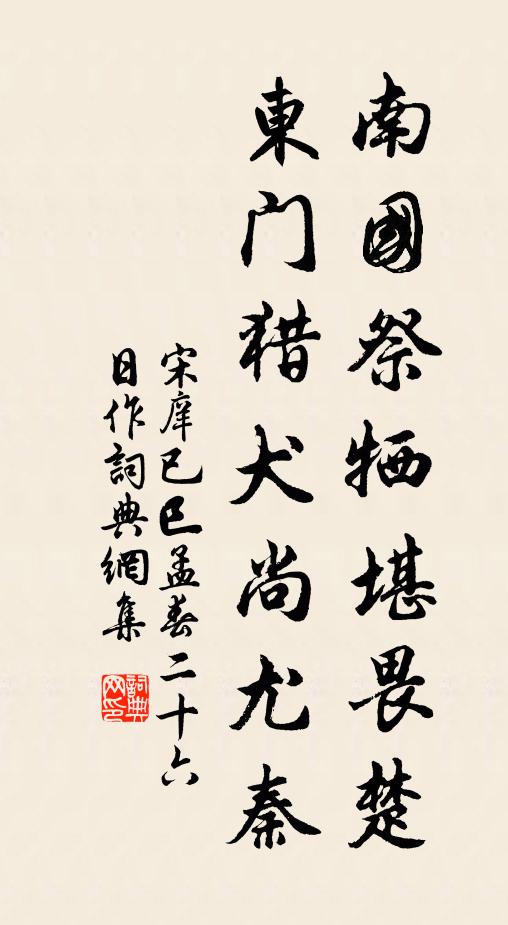 南國祭牺堪畏楚
東门猎犬尚尤秦
宋庠已巳孟春二十六
日作詞典網集
詞典网印